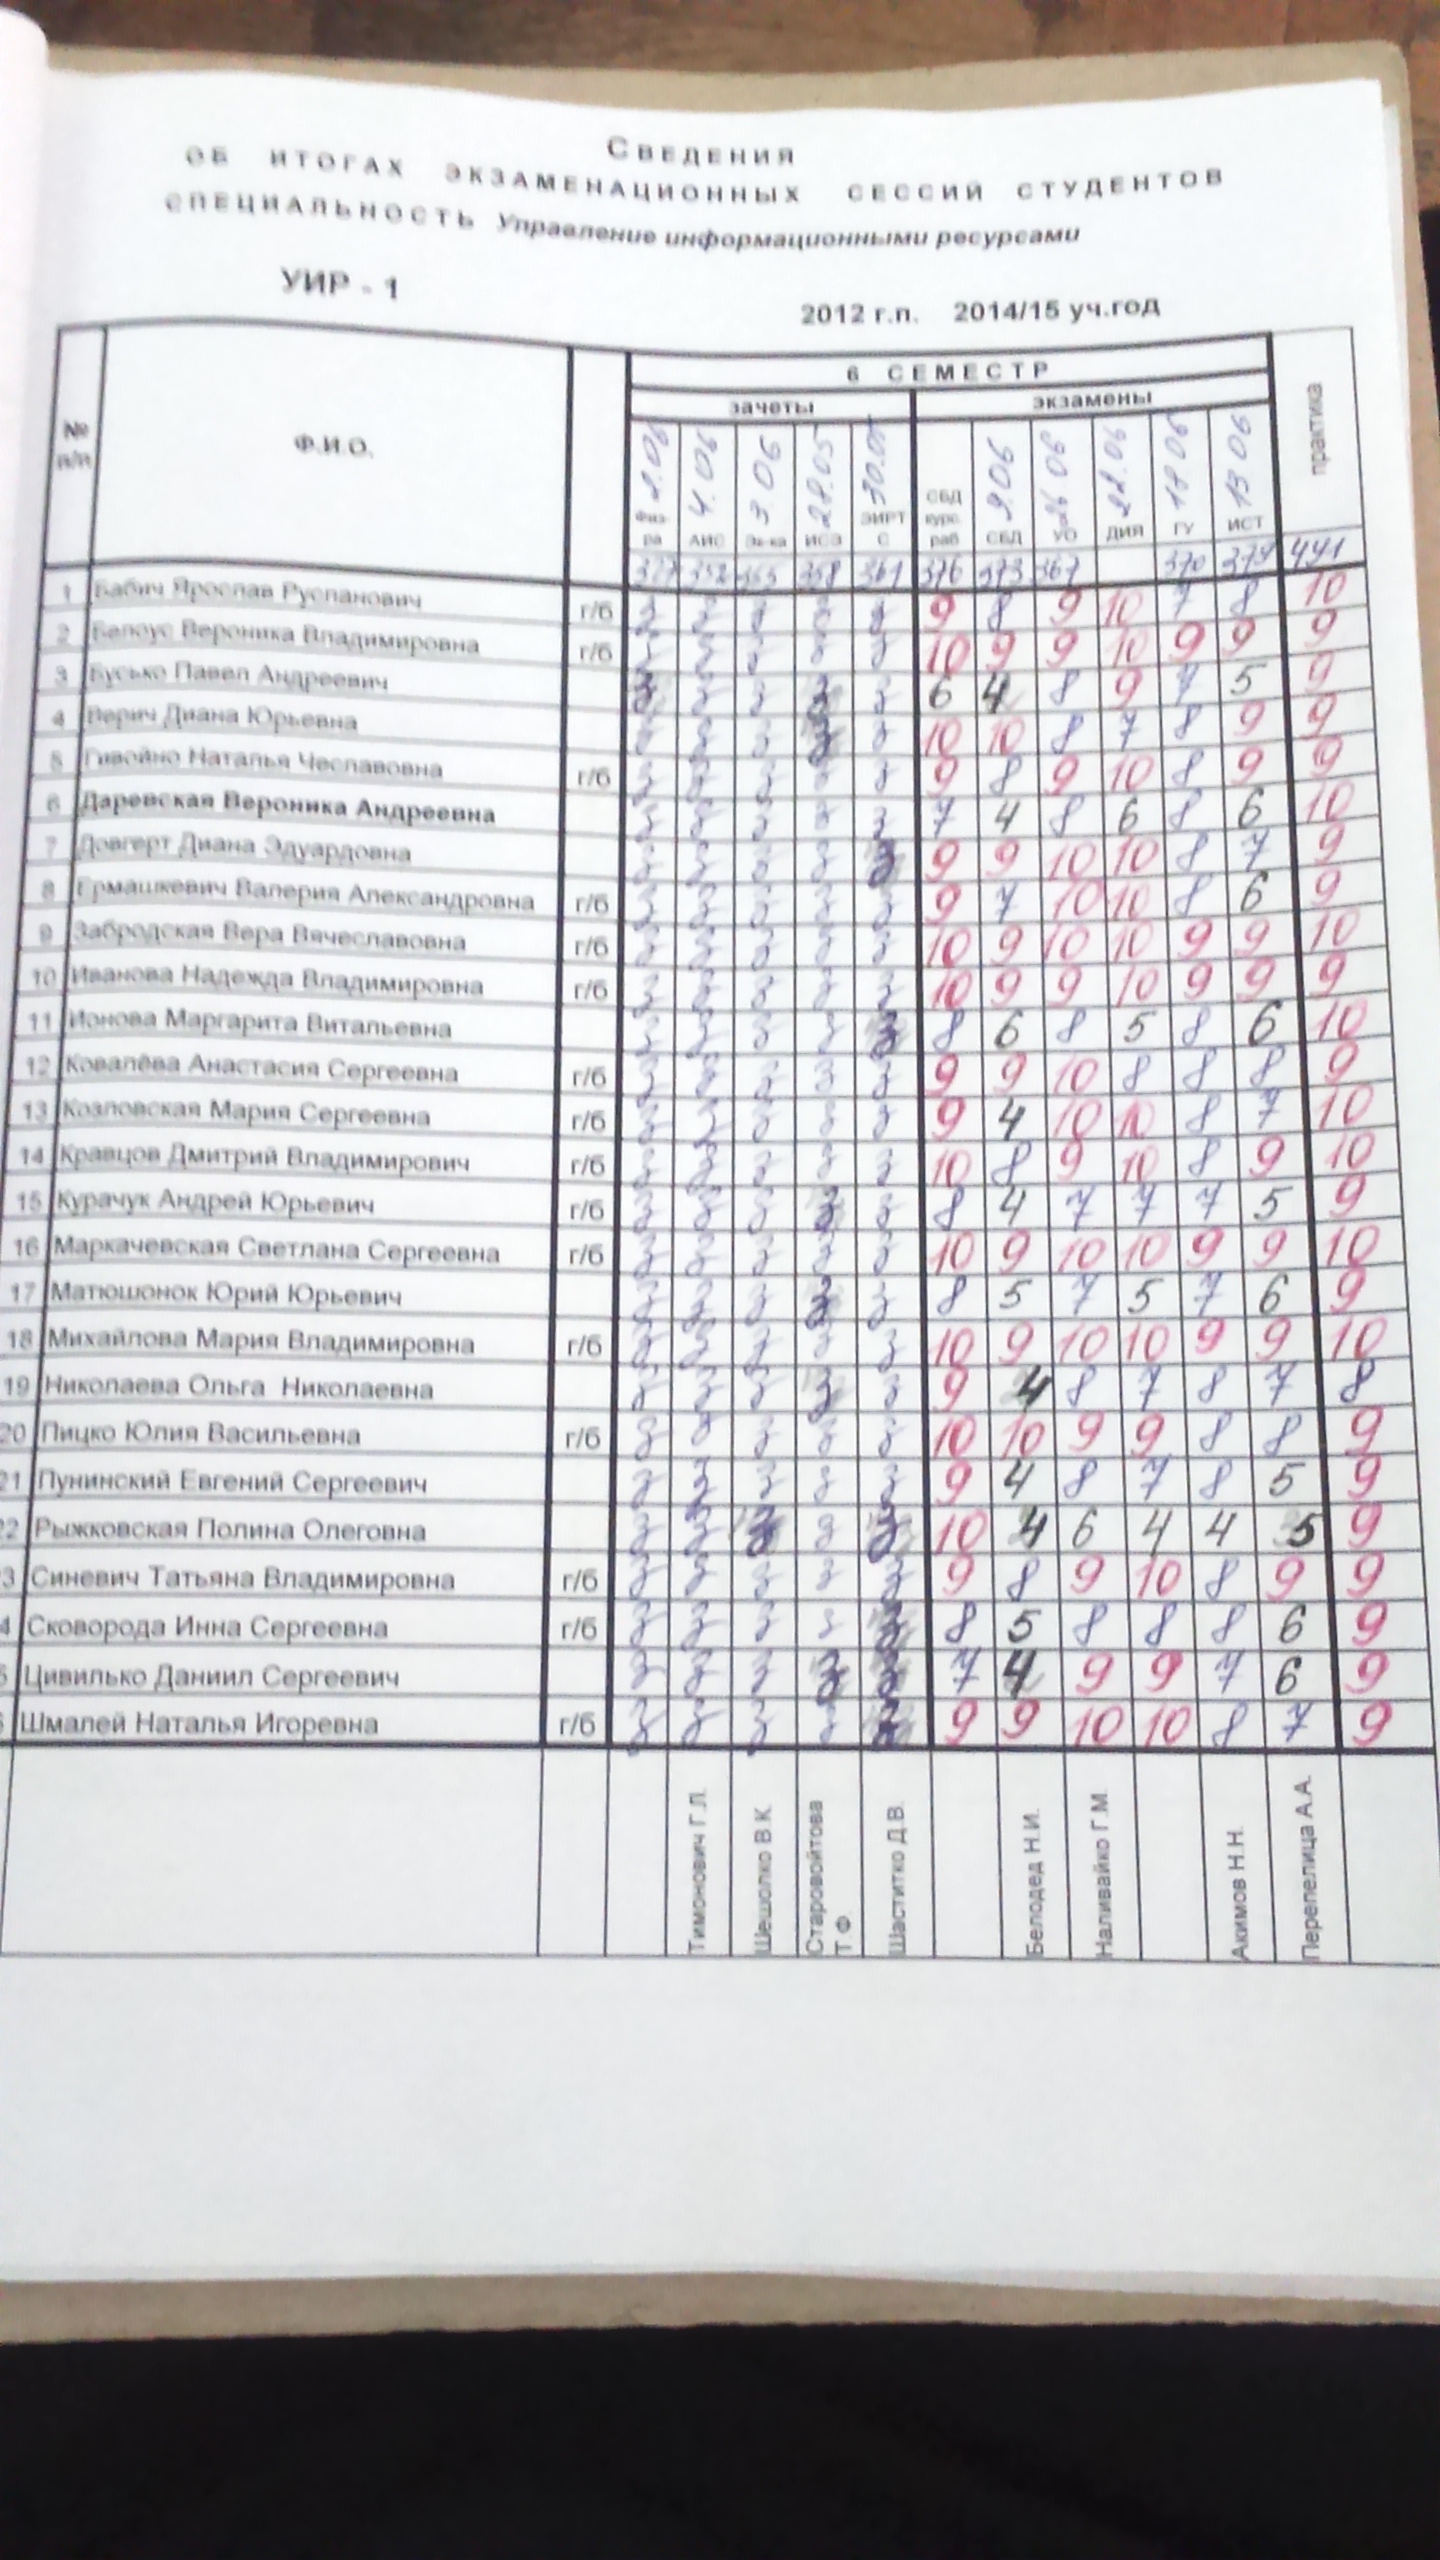 СВЕДЕНИЯ
ОБ ИТОГАХ ЭКЗАМЕНАЦИОННЫХ СЕССИЙ СТУДЕНТОВ
СПЕЦИАЛЬНОСТЬ Управление информационными ресурсами
УИР - 1
2012 г.п. 2014/15 уч.год
6 СЕМЕСТР
зачеты экзамены практика
№ п/п Ф.И.О.
4.06 3.06 28.05 30.05 9.06 26.06 22.06 18.06 13.06
Физ-ра АИС Эк-ка ИСЭ ЭИРТС СБД курс. раб СБД УО ДИЯ ГУ ИСТ
377 352 365 358 361 376 373 367 370 379 441
1 Бабич Ярослав Русланович г/б з з з з з 9 8 9 10 7 8 10
2 Белоус Вероника Владимировна г/б з з з з з 10 9 9 10 9 9 9
3 Бусько Павел Андреевич з з з з з 6 4 8 9 7 5 9
4 Верич Диана Юрьевна з з з з з 10 10 8 7 8 9 9
5 Гивойно Наталья Чеславовна г/б з з з з з 9 8 9 10 8 9 9
6 Даревская Вероника Андреевна з з з з з 7 4 8 6 8 6 10
7 Довгерт Диана Эдуардовна з з з з з 9 9 10 10 8 7 9
8 Ермашкевич Валерия Александровна г/б з з з з з 9 7 10 10 8 6 9
9 Забродская Вера Вячеславовна г/б з з з з з 10 9 10 10 9 9 10
10 Иванова Надежда Владимировна г/б з з з з з 10 9 9 10 9 9 9
11 Ионова Маргарита Витальевна з з з з з 8 6 8 5 8 6 10
12 Ковалёва Анастасия Сергеевна г/б з з з з з 9 9 10 8 8 8 9
13 Козловская Мария Сергеевна г/б з з з з з 9 4 10 10 8 7 10
14 Кравцов Дмитрий Владимирович г/б з з з з з 10 8 9 10 8 9 10
15 Курачук Андрей Юрьевич г/б з з з з з 8 4 7 7 7 5 9
16 Маркачевская Светлана Сергеевна г/б з з з з з 10 9 10 10 9 9 10
17 Матюшонок Юрий Юрьевич з з з з з 8 5 7 5 7 6 9
18 Михайлова Мария Владимировна г/б з з з з з 10 9 10 10 9 9 10
19 Николаева Ольга Николаевна з з з з з 9 4 8 7 8 7 8
20 Пицко Юлия Васильевна г/б з з з з з 10 10 9 9 8 8 9
21 Пунинский Евгений Сергеевич з з з з з 9 4 8 7 8 5 9
22 Рыжковская Полина Олеговна з з з з з 10 4 6 4 4 5 9
3 Синевич Татьяна Владимировна г/б з з з з з 9 8 9 10 8 9 9
4 Сковорода Инна Сергеевна г/б з з з з з 8 5 8 8 8 6 9
5 Цивилько Даниил Сергеевич з з з з з 7 4 9 9 7 6 9
6 Шмалей Наталья Игоревна г/б з з з з з 9 9 10 10 8 7 9
Тимонович Г.Л.
Шешолко В.К.
Старовойтова Т.Ф.
Шаститко Д.В.
Белодед Н.И.
Наливайко Г.М.
Акимов Н.Н.
Перепелица А.А.